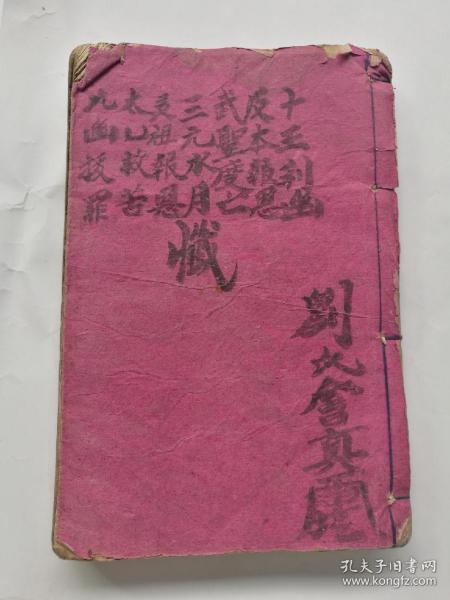 十王刹幽
反本報恩
武聖度亡
三元水月
灵祖報恩
太乙救苦
九幽拔罪
懺
劉大會真
孔夫子旧书网
www.kongfz.com